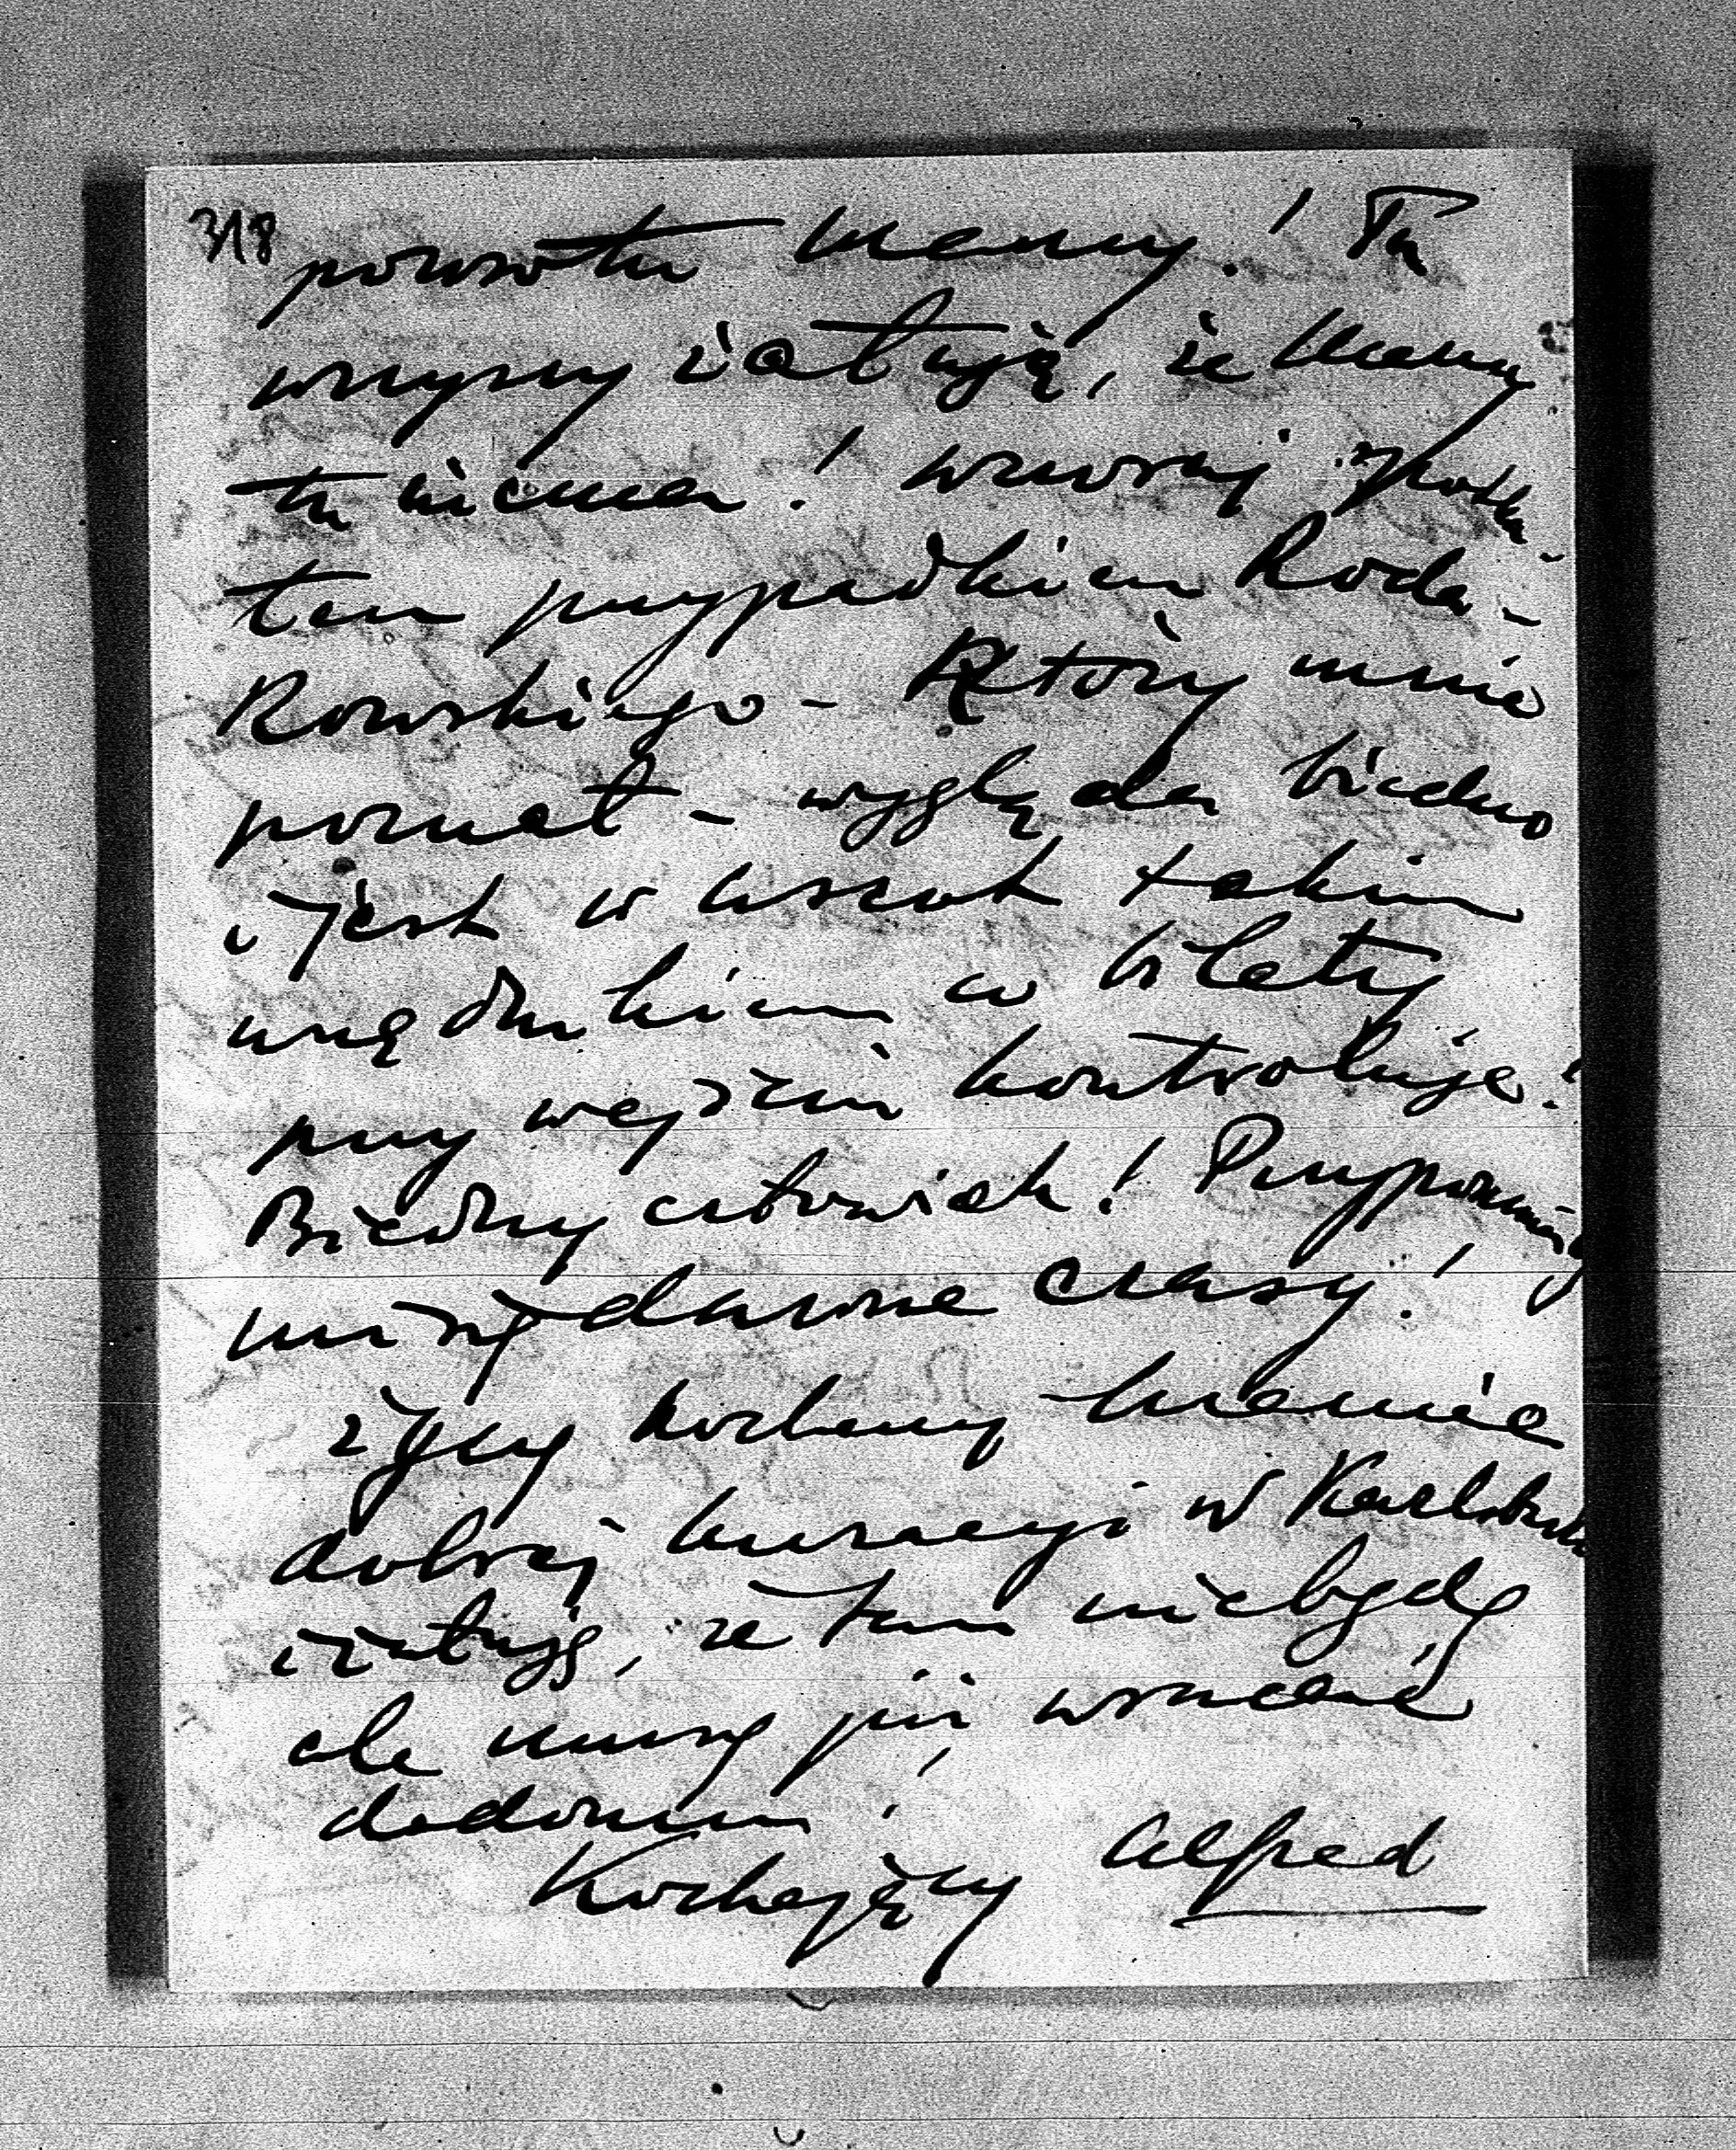 318
powrotu Mamy! Tu
wszyscy żałują, że Mamy
tu niema! wczoraj spotka-
łem przypadkiem Roda-
kowskiego - który mnie
poznał - wygląda biedno
i jest w takim
urzędnikiem co bilety
przy wejściu kontroluje!
Biedny człowiek! Przypominają
mi się dawne czasy!
życzę kochanej Mamie
dobrej kuracyi w Karlsbad
i żałuję, że tam niebędę
ale muszę już wracać
dodomu!
Kochający Alfred